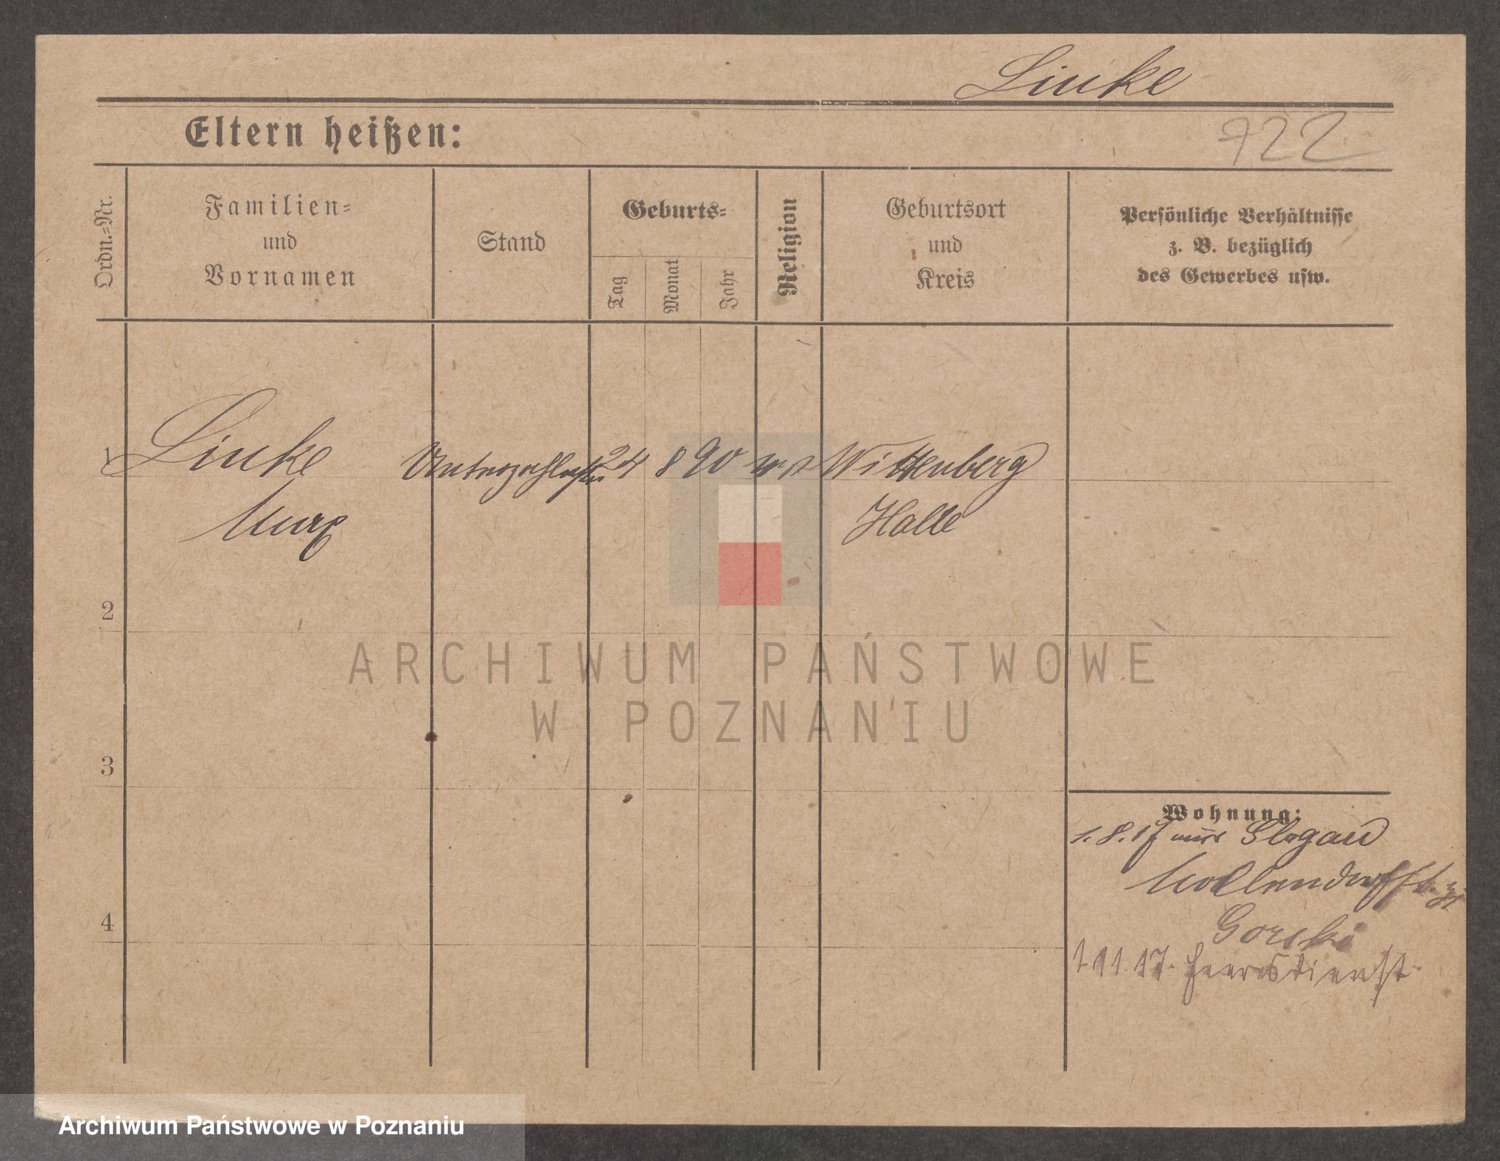 Linke
Eltern heißen:
722
Ordn.=Nr.
Familien=
und
Vornamen
Stand
Geburts=
Tag
Monat
Jahr
Religion
Geburtsort
und
Kreis
Persönliche Verhältnisse
z. B. bezüglich
des Gewerbes usw.
1 Linke 24 8 90 Wittenberg
Max Halle
2
ARCHIWUM PAŃSTWOWE
W POZNANIU
3
Wohnung:
1.8.17 Glogau
4
Gorski
1 11. 17. Heeresdienst
Archiwum Państwowe w Poznaniu